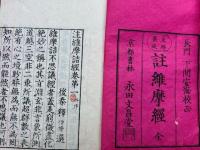 長門 下間空教校正
註維摩經 全
京都書林 永田文昌堂
註維摩詰經卷第一
後秦釋僧肇選
維摩詰不思議經者蓋是窮
絶妙之稱也其旨淵玄非言象
道越三空非二乘所議超群數
絶有心之境眇莽無為而無不
知所以然而能然者不思議